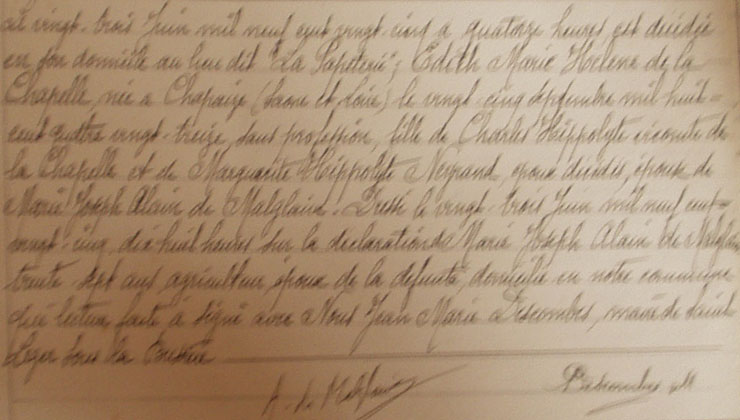 vingt-trois Juin mil neuf cent vingt-cinq a quatorze heures est décédée
en son domicile au lieu dit "La Papeterie"; Edith Marie Hélène de la
Chapelle, née a Chapaize (Saone et Loire) le vingt-cinq septembre mil huit-
cent quatre vingt-treize, sans profession, fille de Charles Hippolyte vicomte de
la Chapelle et de Marguerite Hippolyte Neyrand, époux décédés, épouse de
Marie Joseph Alain de Malglaive. Dressé le vingt-trois Juin mil neuf cent-
vingt-cinq, dix huit heures sur la déclaration de Marie Joseph Alain de
trente sept ans agriculteur, époux de la défunte, domicilié en notre commune
qui lecture faite à signé avec Nous Jean Marie Descombes, maire de Saint-
Leger sous la Bussière
A. de
Descombes